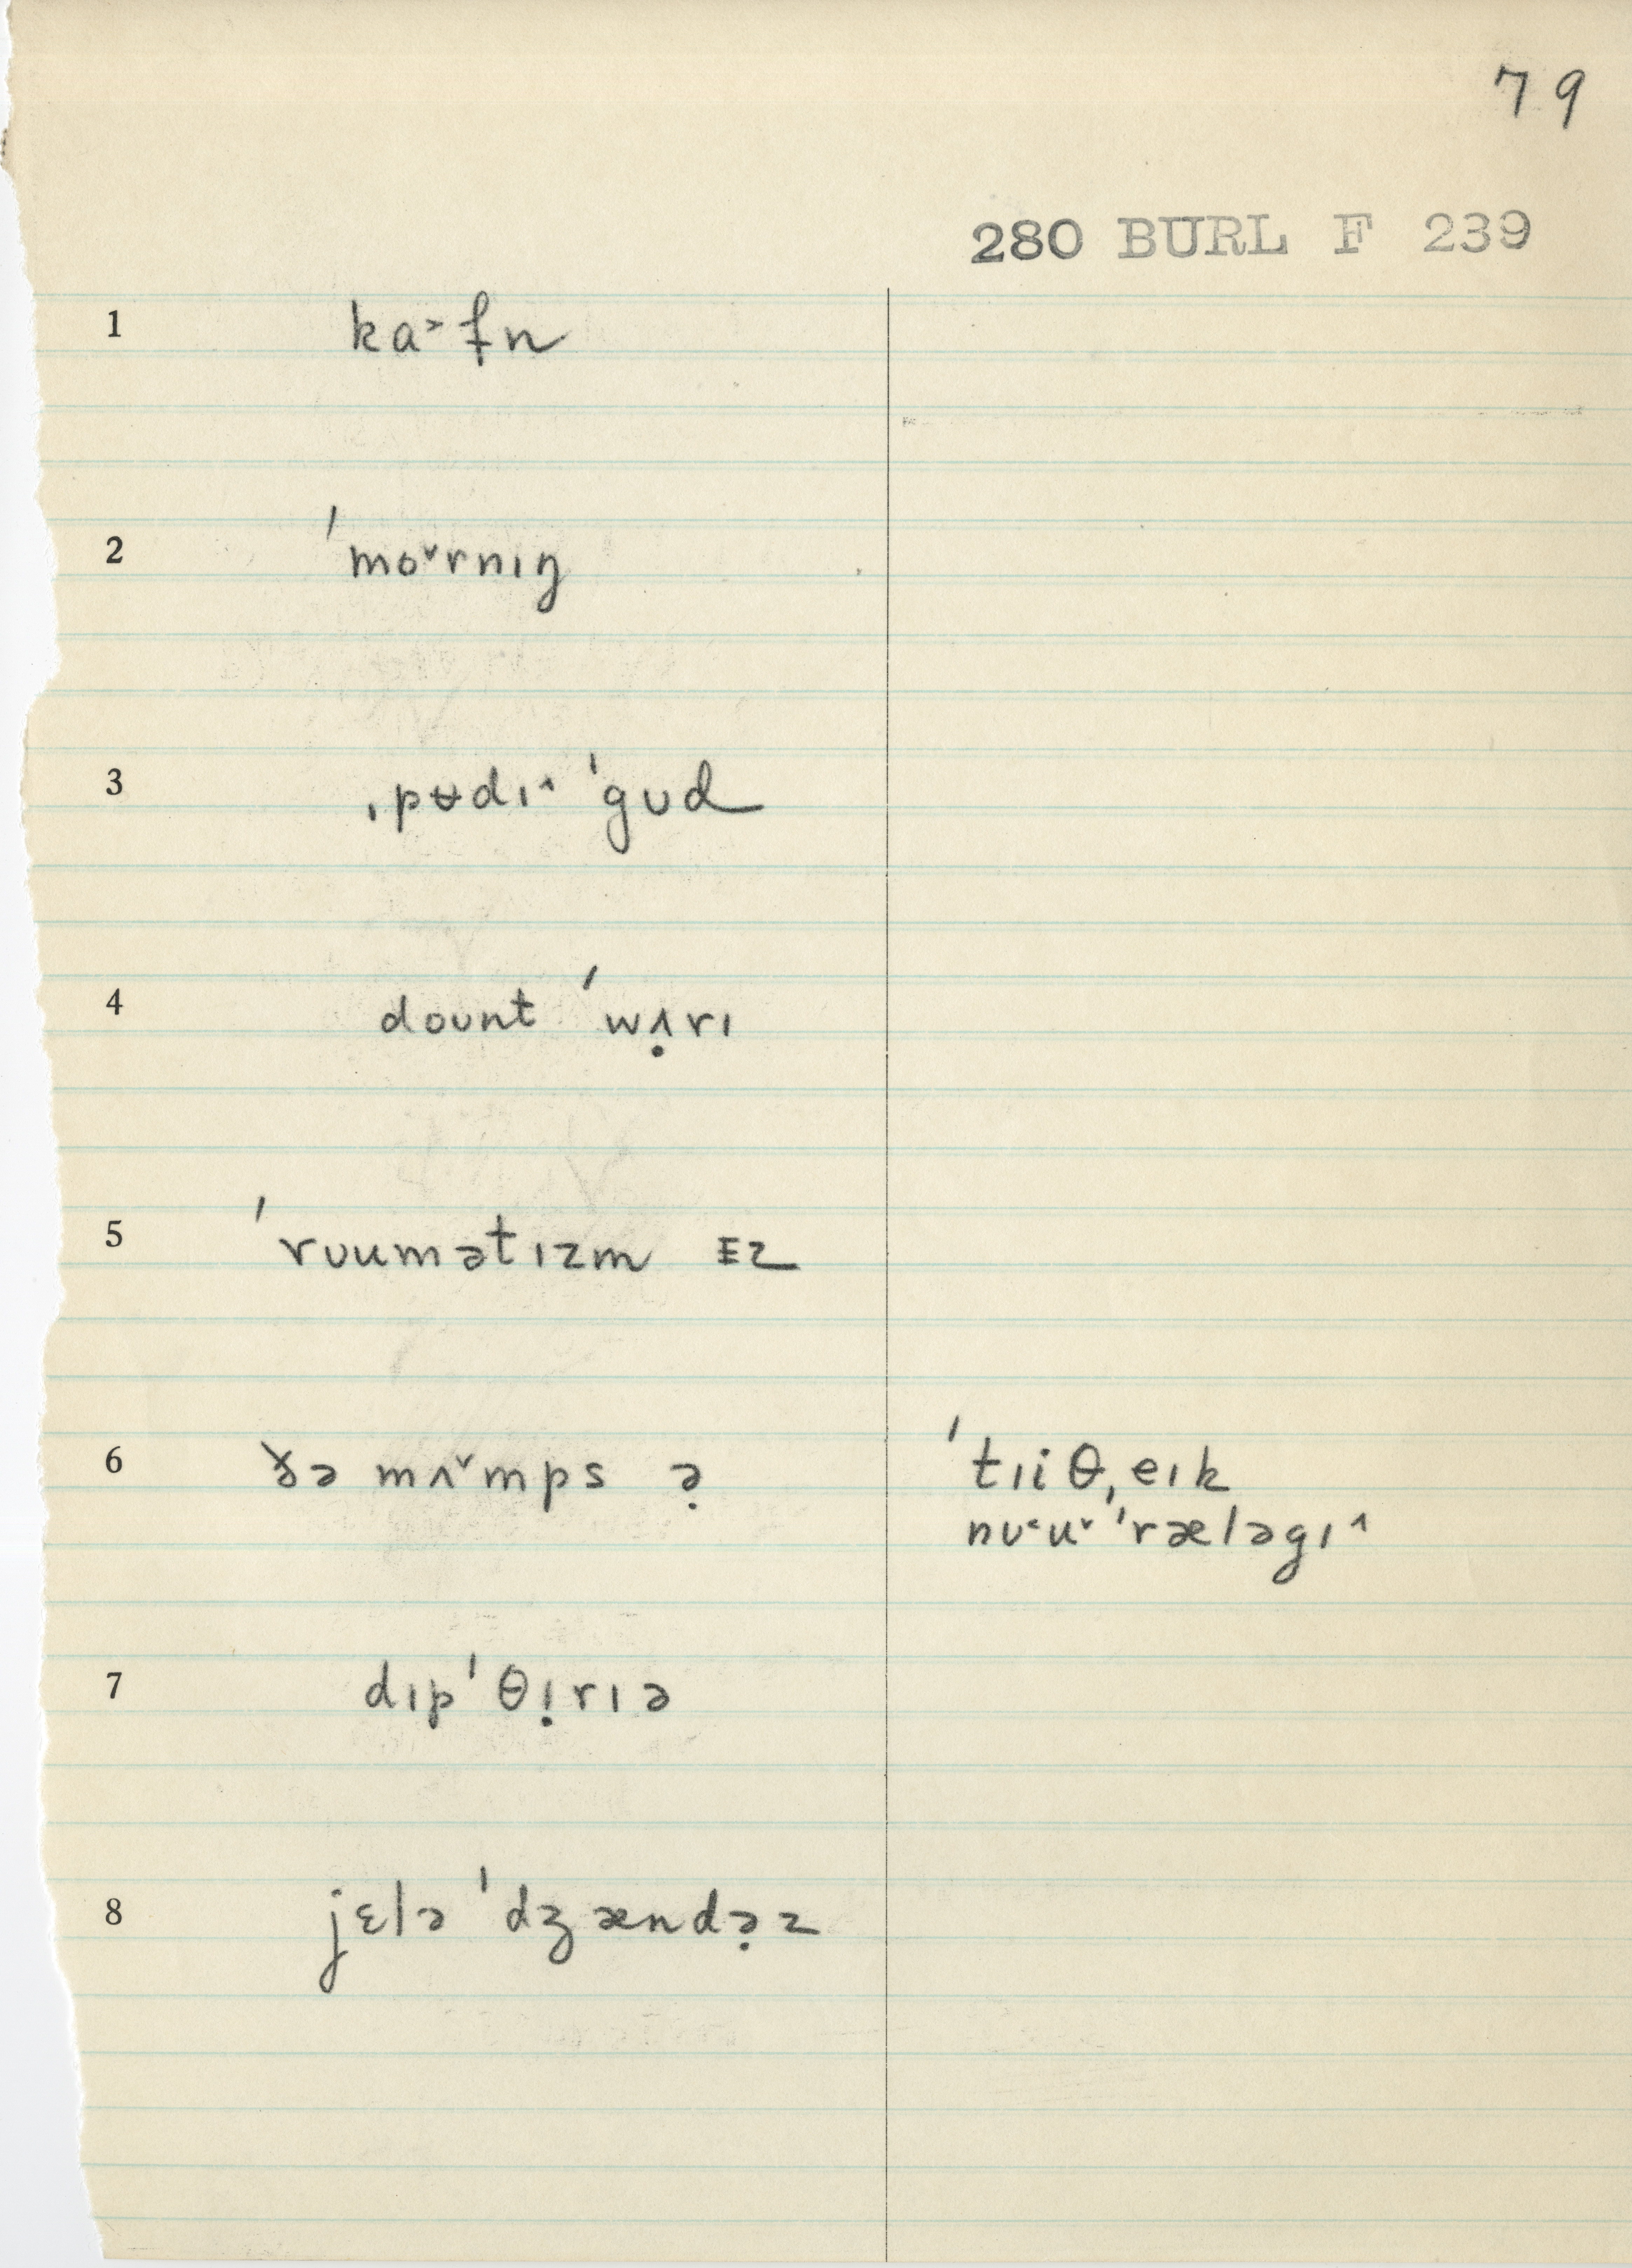 79
280 BURL F 239
1 ka˃fn
2 ˈmo˅rnɪŋ
3 ˌpʉdɪ˄ ˈgʊd
4 doʊnt ˈwʌ̣rɪ
5 ˈrʊumətɪzm ɪz
6 ðə mʌ˅mps ə̣ ˈtɪiθˌeɪk
nʊ˂u˅ˈræləgɪ˄
7 dɪpˈθɪ̣rɪə
8 jɛləˈdʒændə̣z